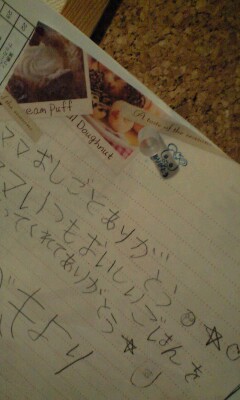 eam puff
Doughnut
ママおしごとありがとう
ママいつもおいしいごはんを
ってくれてありがとう
より